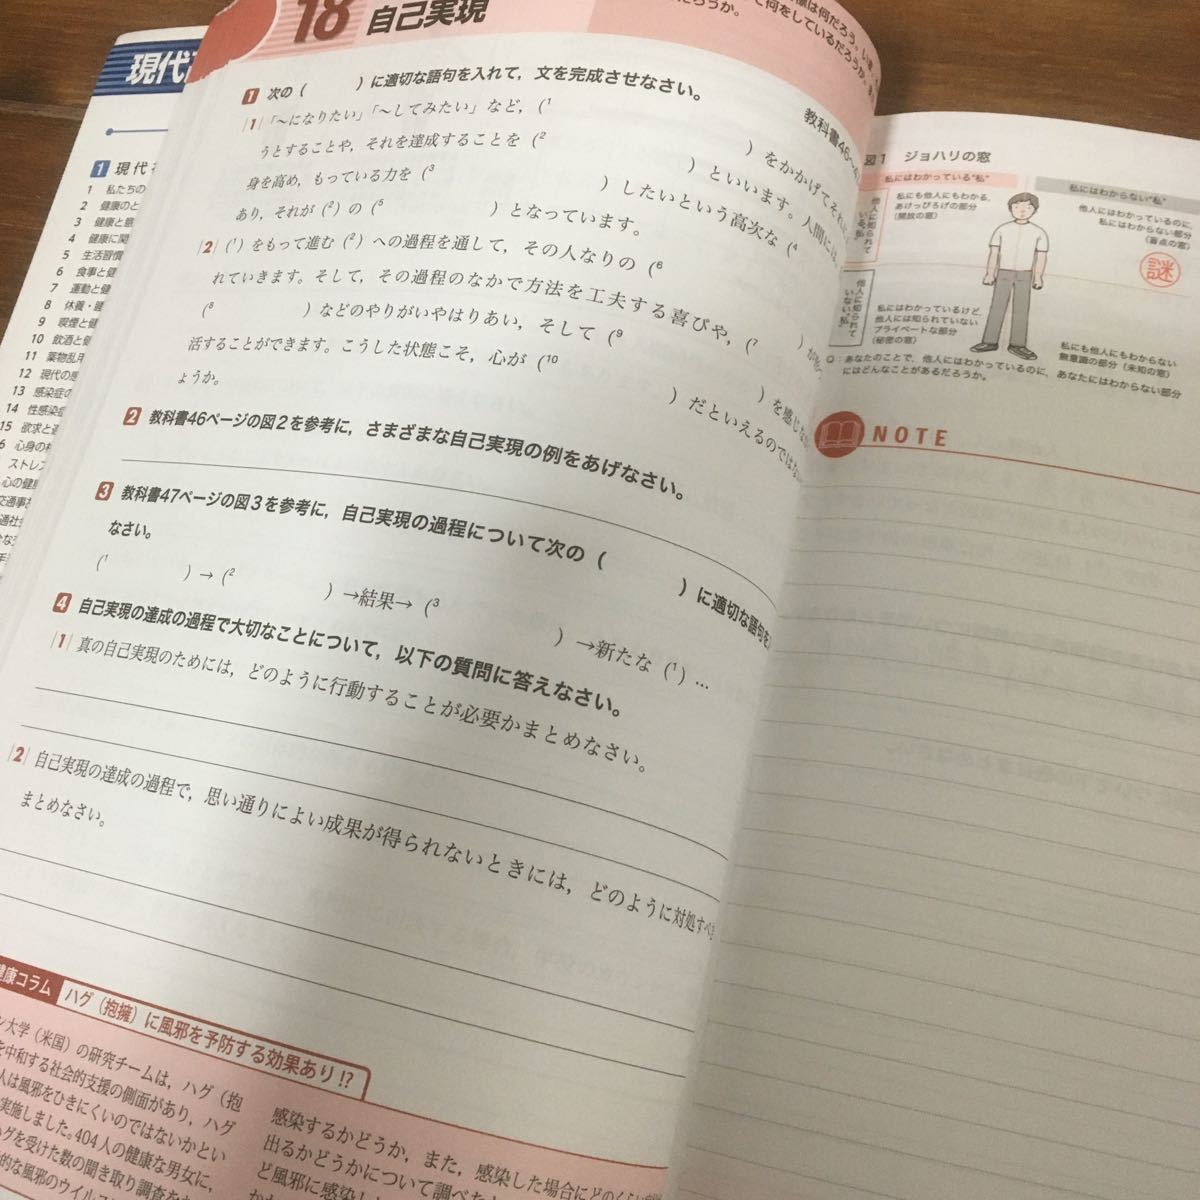 18 自己実現
何をしているだろうか。
教科書46〜4
1 次の( )に適切な語句を入れて，文を完成させなさい。
1 「〜になりたい」「〜してみたい」など，(1 )をかかげてそれに
うとすることや，それを達成することを(2 )といいます。人間には，
身を高め，もっている力を(3 )したいという高次な(4
あり，それが(2)の(5 )となっています。
2 (1)をもって進む(2)への過程を通して，その人なりの(6
れていきます。そして，その過程のなかで方法を工夫する喜びや，(7 )が
(8 )などのやりがいやはりあい，そして(9 )を感じな
活することができます。こうした状態こそ，心が(10 )だといえるのではな
ょうか。
2 教科書46ページの図2を参考に，さまざまな自己実現の例をあげなさい。
3 教科書47ページの図3を参考に，自己実現の過程について次の( )に適切な語句を
なさい。
(1 )→(2 )→結果→(3 )→新たな(1)…
4 自己実現の達成の過程で大切なことについて，以下の質問に答えなさい。
1 真の自己実現のためには，どのように行動することが必要かまとめなさい。
2 自己実現の達成の過程で，思い通りによい成果が得られないときには，どのように対処すべき
まとめなさい。
健康コラム ハグ（抱擁）に風邪を予防する効果あり!?
ン大学（米国）の研究チームは，ハグ（抱
を中和する社会的支援の側面があり，ハグ
人は風邪をひきにくいのではないかとい
実施しました。404人の健康な男女に，
ハグを受けた数の聞き取り調査を
的な風邪のウイルス
感染するかどうか，また，感染した場合にどのくらい
出るかどうかについて調べた
ど風邪に感染し
図1 ジョハリの窓
私にはわかっている“私”
私にはわからない“私”
他人に知られている“私”
他人に知られていない“私”
私にも他人にもわかる，
あけっぴろげの部分
（開放の窓）
他人にはわかっているのに，
私にはわからない部分
（盲点の窓）
謎
私にはわかっているけど，
他人には知られていない
プライベートな部分
（秘密の窓）
私にも他人にもわからない
無意識の部分（未知の窓）
Q：あなたのことで，他人にはわかっているのに，あなたにはわからない部分
にはどんなことがあるだろうか。
NOTE
現代
1 現代
1 私たちの
2 健康のと
3 健康と意
4 健康に関
5 生活習慣
6 食事と健
7 運動と健
8 休養・睡
9 喫煙と健
10 飲酒と健
11 薬物乱用
12 現代の感
13 感染症の
14 性感染症
15 欲求と適
6 心身の相
ストレス
心の健康
交通事故